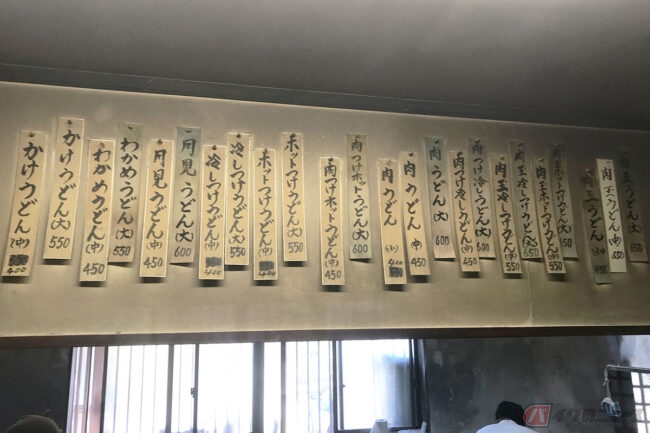 かけうどん(中) 400
かけうどん(大) 550
わかめうどん(中) 450
わかめうどん(大) 550
月見うどん(中) 450
月見うどん(大) 600
冷しつけうどん(中) 400
冷しつけうどん(大) 550
ホットつけうどん(中) 400
ホットつけうどん(大) 550
肉つけホットうどん(中) 450
肉つけホットうどん(大) 600
肉うどん(小) 400
肉うどん(中) 450
肉うどん(大) 600
肉つけ冷しうどん(中) 450
肉つけ冷しうどん(大) 600
肉玉冷しつけうどん(中) 550
肉玉冷しつけうどん(大) 650
肉玉ホットつけうどん(中) 550
肉玉ホットつけうどん(大) 650
肉玉うどん(小) 450
肉玉うどん(中)
肉玉うどん(大)